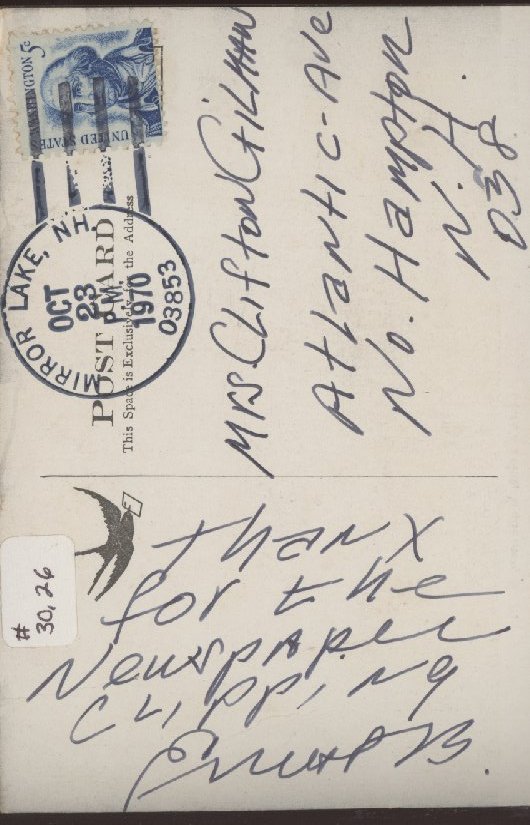 thanx
for the
Newspaper
Clipping
POST CARD
This Space is Exclusively for the Address
MIRROR LAKE, NH
OCT
23
PM
1970
03853
UNITED STATES
WASHINGTON 5c
Mrs. Clifton Gilman
Atlantic-Ave
No. Hampton
N.H.
038
#
30,26